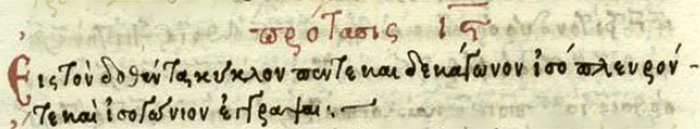 πρότασις ις
Εις τὸν δοθέντα κύκλον πεντεκαιδεκάγωνον ἰσόπλευρόν-
τε καὶ ἰσογώνιον ἐγγράψαι.